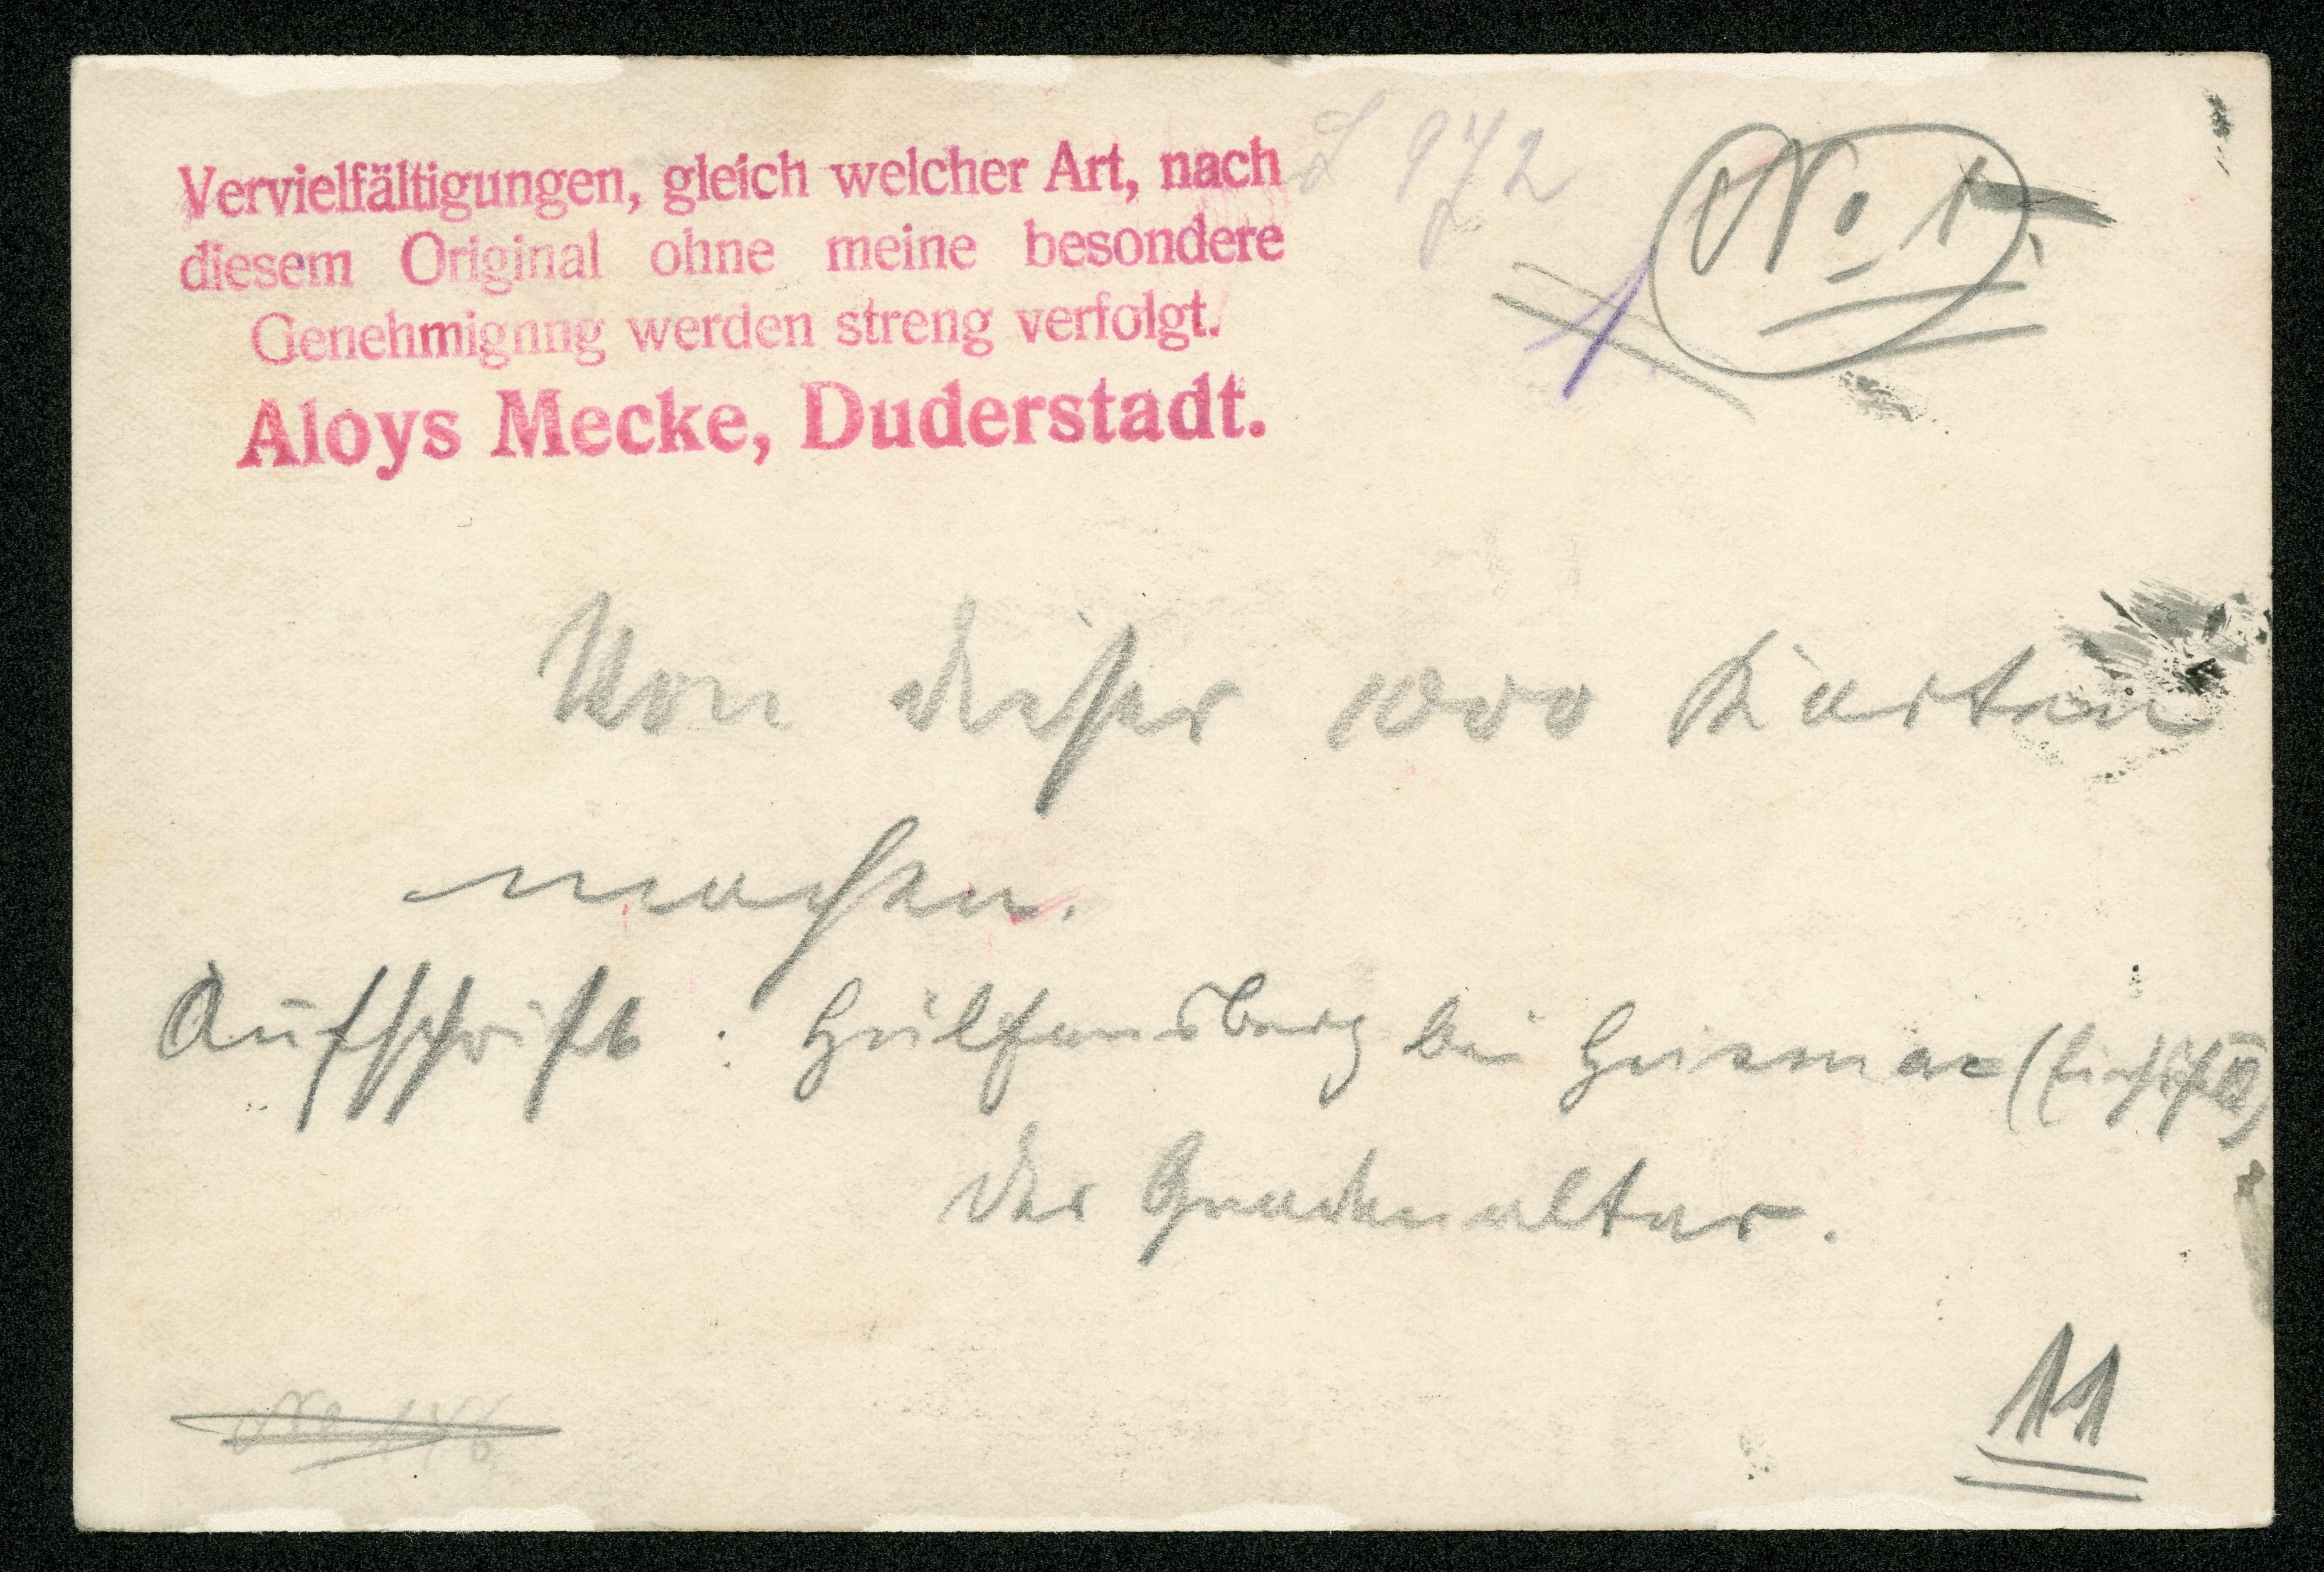 Vervielfältigungen, gleich welcher Art, nach
diesem Original ohne meine besondere
Genehmignng werden streng verfolgt.
Aloys Mecke, Duderstadt.
L 972
No 1
1
Von dieser 1000 Karten
machen.
Aufschrift: Hülfensberg bei Geismar (Eichsfeld)
Der Gnadenaltar.
No 146
11